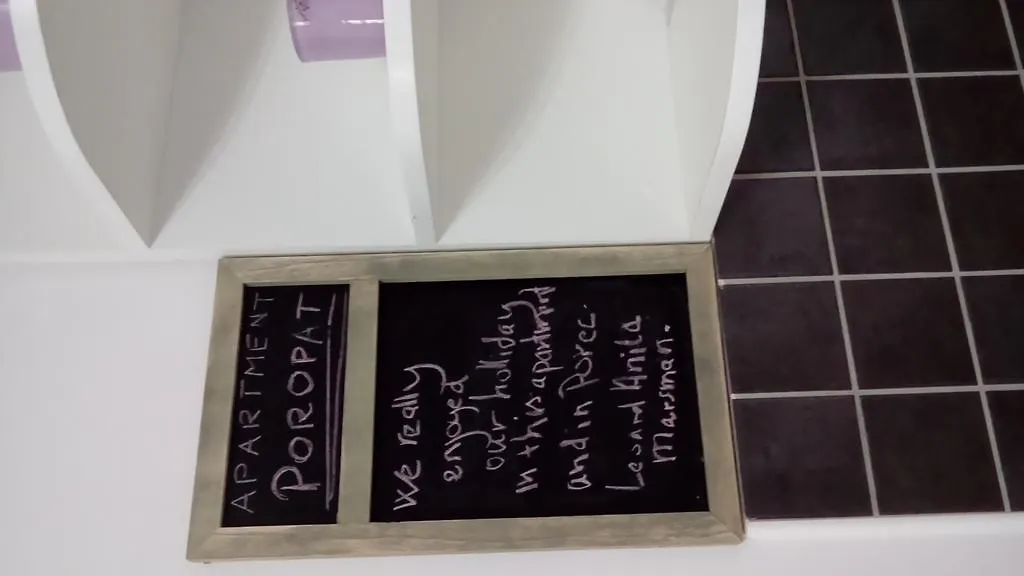 APARTMENT
POROPAT
We really
enjoyed
our holiday
in this apartment
and in Porec.
Leo and Anita
Marsman.